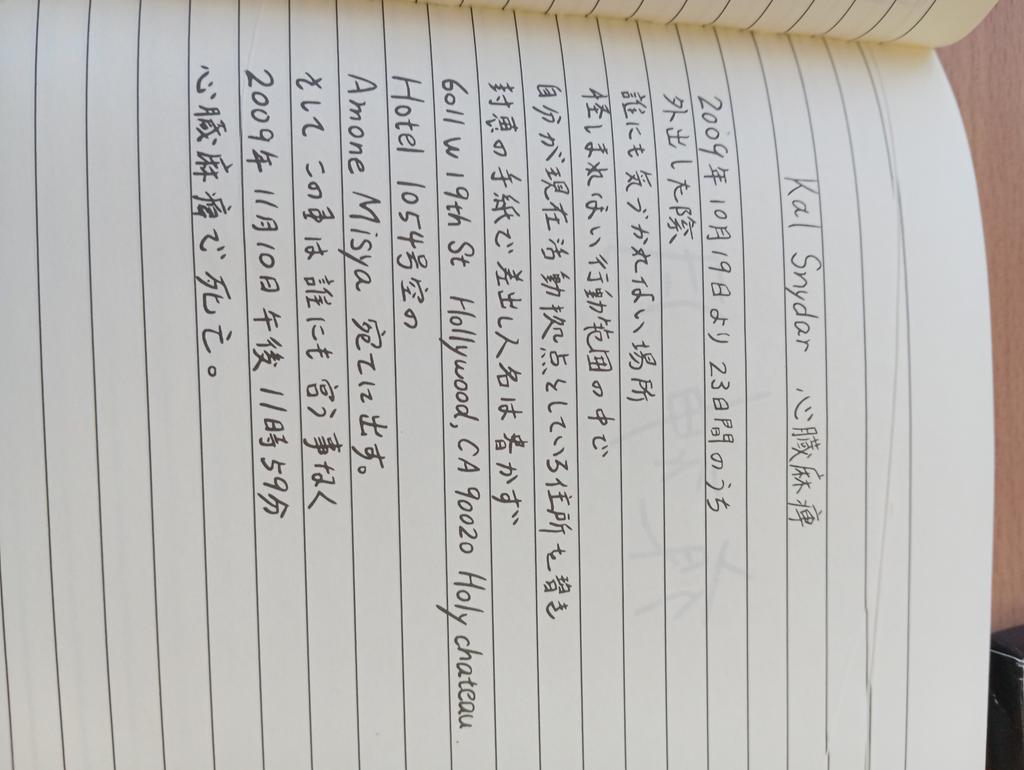 Kal Snydar 心臓麻痺
2009年10月19日より 23日間のうち
外出した際
誰にも気づかれない場所
怪しまれない行動範囲の中で
自分が現在活動拠点としている住所を書き
封筒の手紙で差出し人名は書かず
6011 W 19th St Hollywood, CA 90020 Holy chateau
Hotel 1054号室の
Amone Misya 宛てに出す。
そして この事は誰にも言う事なく
2009年11月10日午後11時59分
心臓麻痺で死亡。